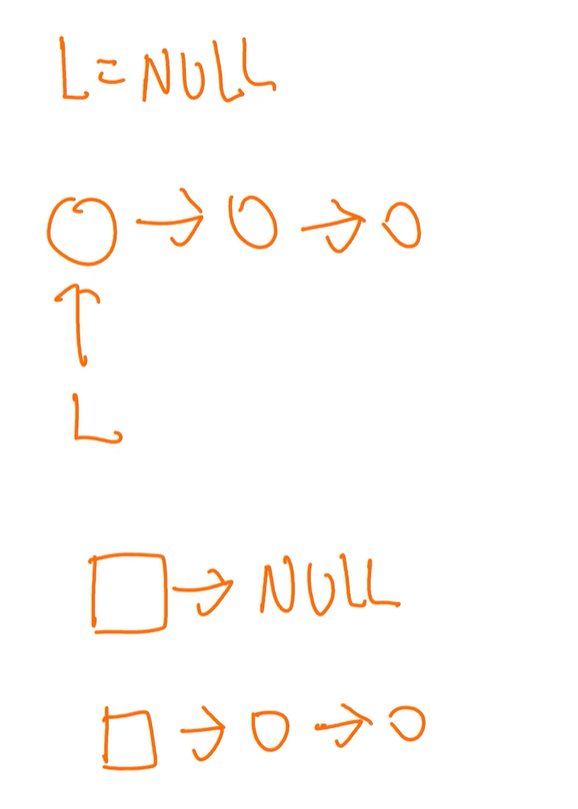 L=NULL
L
NULL